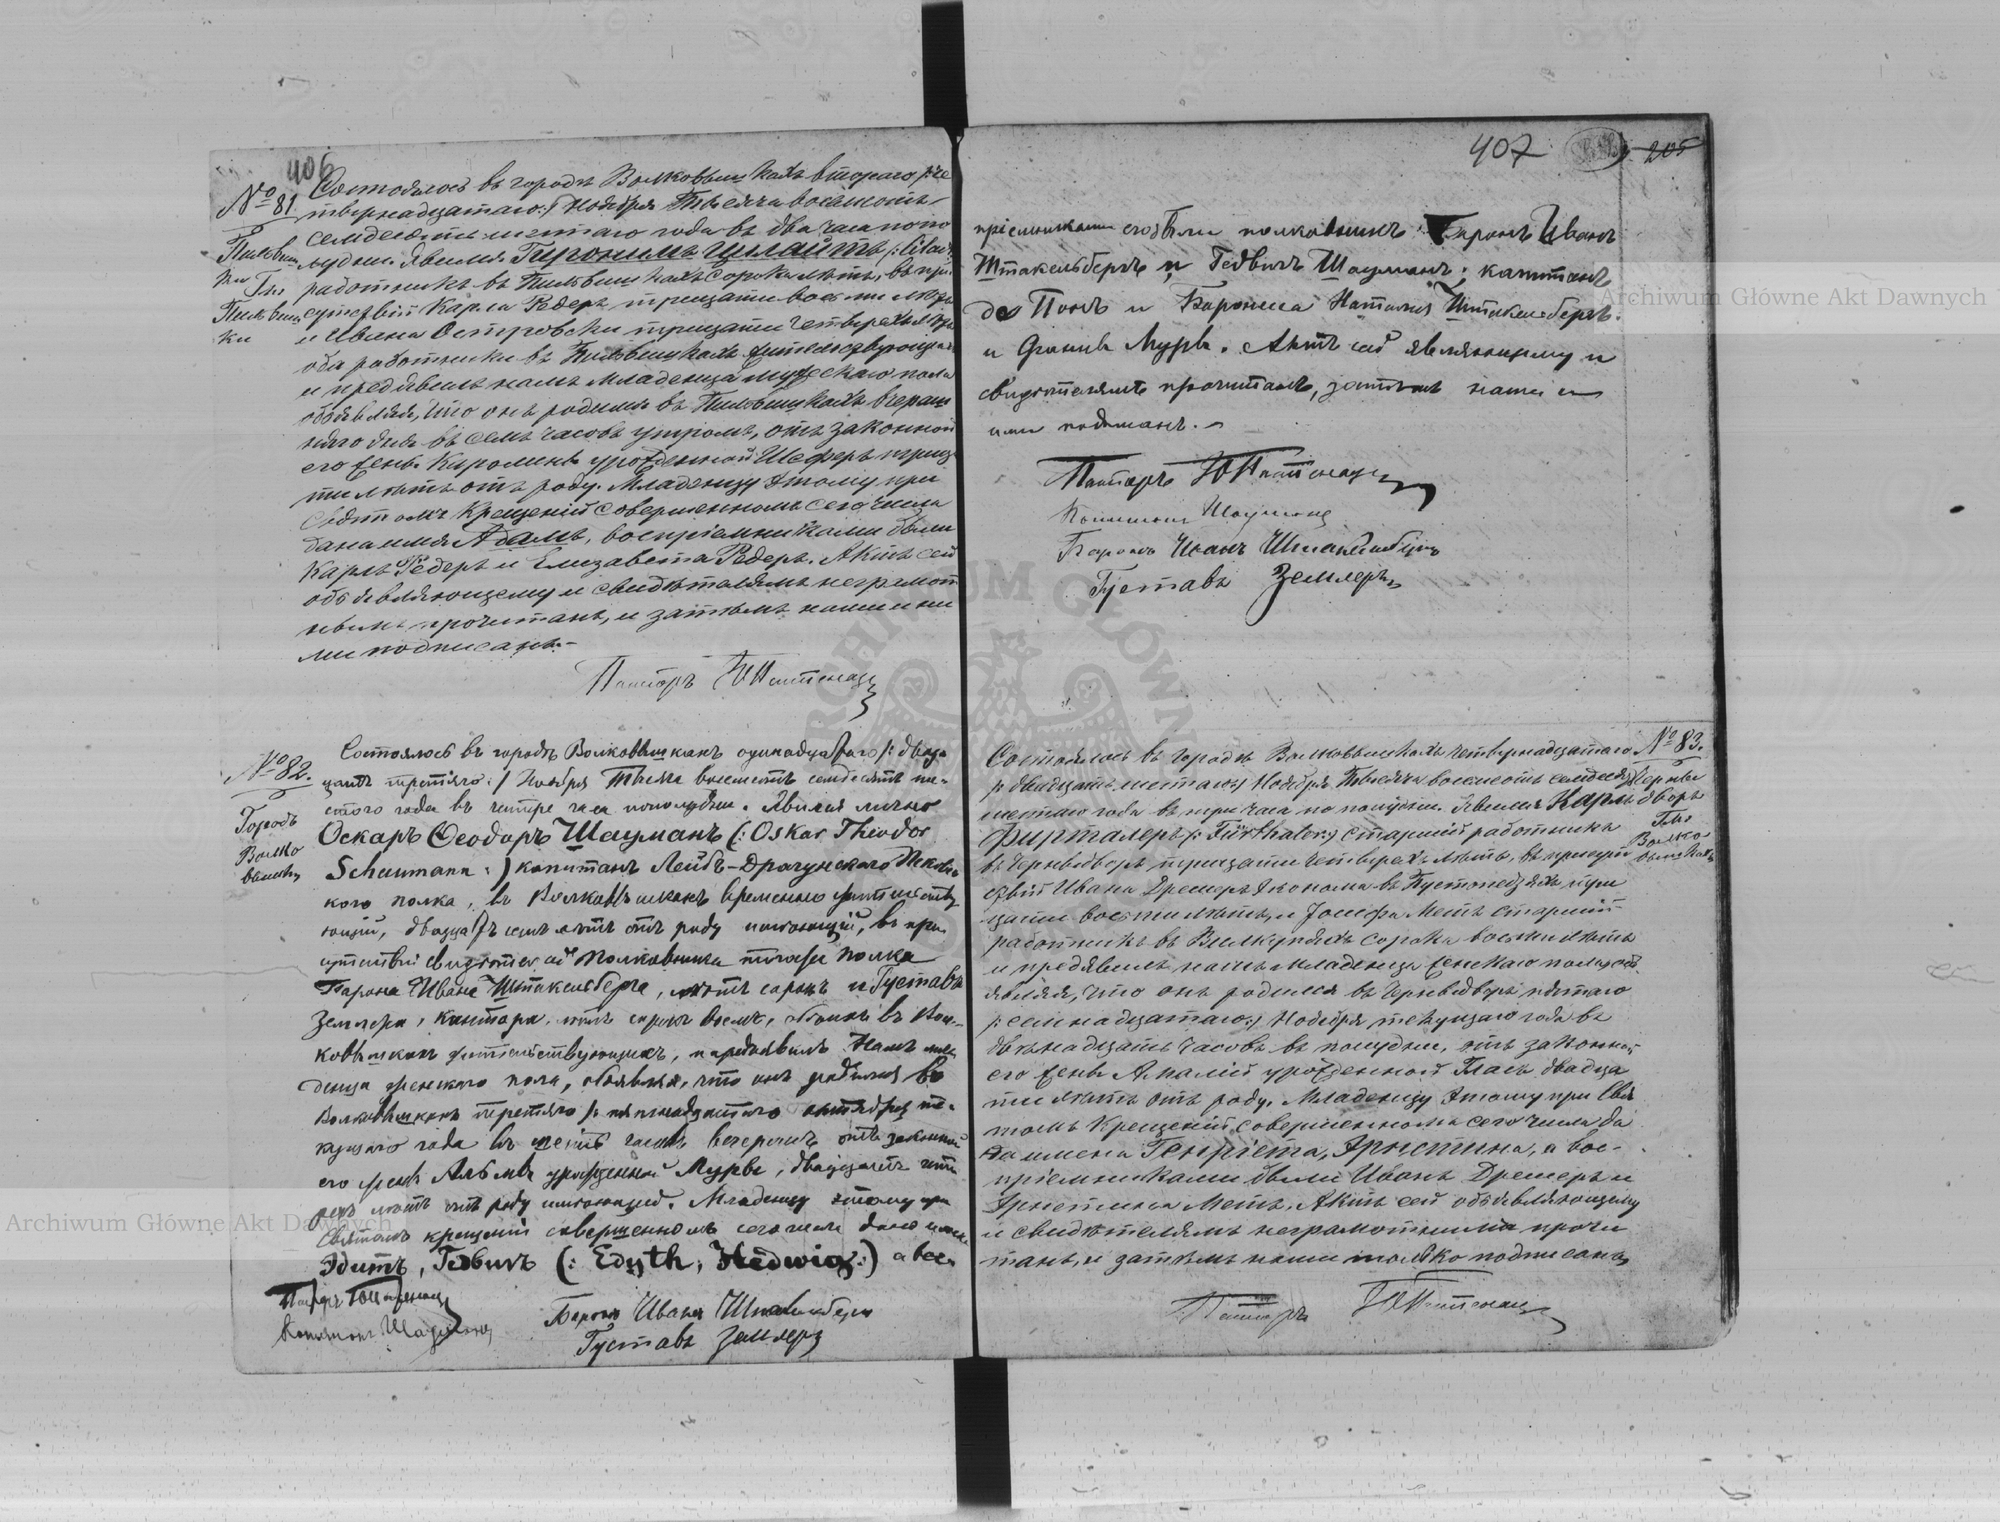 406
№ 81
Пилвиш
ки Гм.
Пилвиш
ки
Состоялось въ городѣ Волковышкахъ втораго /: че
тырнадцатаго :/ Ноября Тысяча восемьсотъ
семдесятъ шестаго года въ два часа попо
лудни. Явился Геронимъ
работникъ въ Пилвишкахъ сорока лѣтъ, въ при
сутствіи Карла Редеръ тридцати восьми лѣтъ
и Ивана Островски тридцати четырехъ лѣтъ
оба работники въ Пилвишкахъ жительствующіе
и предъявилъ намъ младенца мужескаго пола
объявляя, что онъ родился въ Пилвишкахъ вчераш
няго дня въ семь часовъ утромъ, отъ законной
его жены Каролины урожденной Шеферъ тридца
ти лѣтъ отъ роду. Младенцу этому при
Святомъ Крещеніи совершенномъ сего числа
дано имя Адамъ, воспріемниками были
Карлъ Редеръ и Елизавета Редеръ. Актъ сей
объявляющему и свидѣтелямъ неграмот
нымъ прочитанъ, и затѣмъ нами
подписанъ.
Пасторъ
№ 82.
Городъ
Волко
вышки
Состоялось въ городѣ Волковышкахъ одинадцатаго /: двад
цать третяго :/ Ноября Тысяча восемьсотъ семдесятъ ше-
стого года въ четыре часа пополудни. Явился лично
Оскаръ Ѳеодоръ Шауманъ (: Oskar Theodor
Schaumann :) капитанъ Лейбъ-Драгунскаго Псковс
каго полка, въ Волковышкахъ временно жительству
ющій, двадцать семь лѣтъ отъ роду имѣющій, въ при
сутствіи свидѣтелей полковника того же полка
Барона Ивана Штакельберга, лѣтъ сорокъ и Густава
Землера, кантора, лѣтъ сорокъ восемь, обоихъ въ Вол-
ковышкахъ жительствующихъ, и предъявилъ намъ мла
денца женскаго пола, объявляя, что онъ родился въ
Волковышкахъ третяго /: пятнадцатаго октября те-
кущаго года въ часовъ вечеромъ отъ законной
его жены Альмы урожденной Мурвъ, двадцать четы
рехъ лѣтъ отъ роду имѣющей. Младенцу этому при
Святомъ крещеніи совершенномъ сего числа дано имена
Эдитъ, Гедвигъ (: Edyth, Hedwig :) а вос-
Пасторъ
Капитанъ Шауманъ
Баронъ Иванъ Штакельбергъ
Густавъ Землеръ
407
205
пріемниками его были полковникъ Баронъ Иванъ
Штакельбергъ и Гедвигъ Шауманъ; капитанъ
де Понъ и Баронеса Наталія Штакельбергъ
и Фанни Мурвъ. Актъ сей являющему и
свидѣтелямъ прочитанъ, затѣмъ нами и
ими подписанъ.
Пасторъ
Капитанъ Шауманъ
Баронъ Иванъ Штакельбергъ
Густавъ Землеръ
№ 83.
Червы
дворъ
Гмо
Волко
вышкахъ
Состоялось въ городѣ Волковышкахъ четырнадцатаго
/: двадцать шестаго :/ Ноября Тысяча восемьсотъ семдесятъ
шестаго года въ три часа по полудни. Явился Карлъ
Фирталеръ /: Fürthaler :/ старшій работникъ
въ тридцати четырехъ лѣтъ, въ присут
ствіи Ивана Дремеръ эконома въ три
дцати восьми лѣтъ, и Іосифа Метъ старшій
работникъ въ Вилкупяхъ сорока восьми лѣтъ
и предъявилъ намъ младенца женскаго пола объ
являя, что онъ родился въ пятаго
/: семнадцатаго :/ Ноября текущаго года въ
двѣнадцать часовъ въ полудни, отъ законной
его жены Амаліи урожденной Гласъ двадца
ти лѣтъ отъ роду. Младенцу этому при Свя
томъ Крещеніи совершенномъ сего числа да
на имена Генріета, Эрнстина, а вос-
пріемниками были Иванъ Дремеръ и
Эрнстина Метъ. Актъ сей объявляющему
и свидѣтелямъ неграмотнымъ прочи
танъ, и затѣмъ нами только подписанъ
Пасторъ
Archiwum Główne Akt Dawnych
Archiwum Główne Akt Dawnych